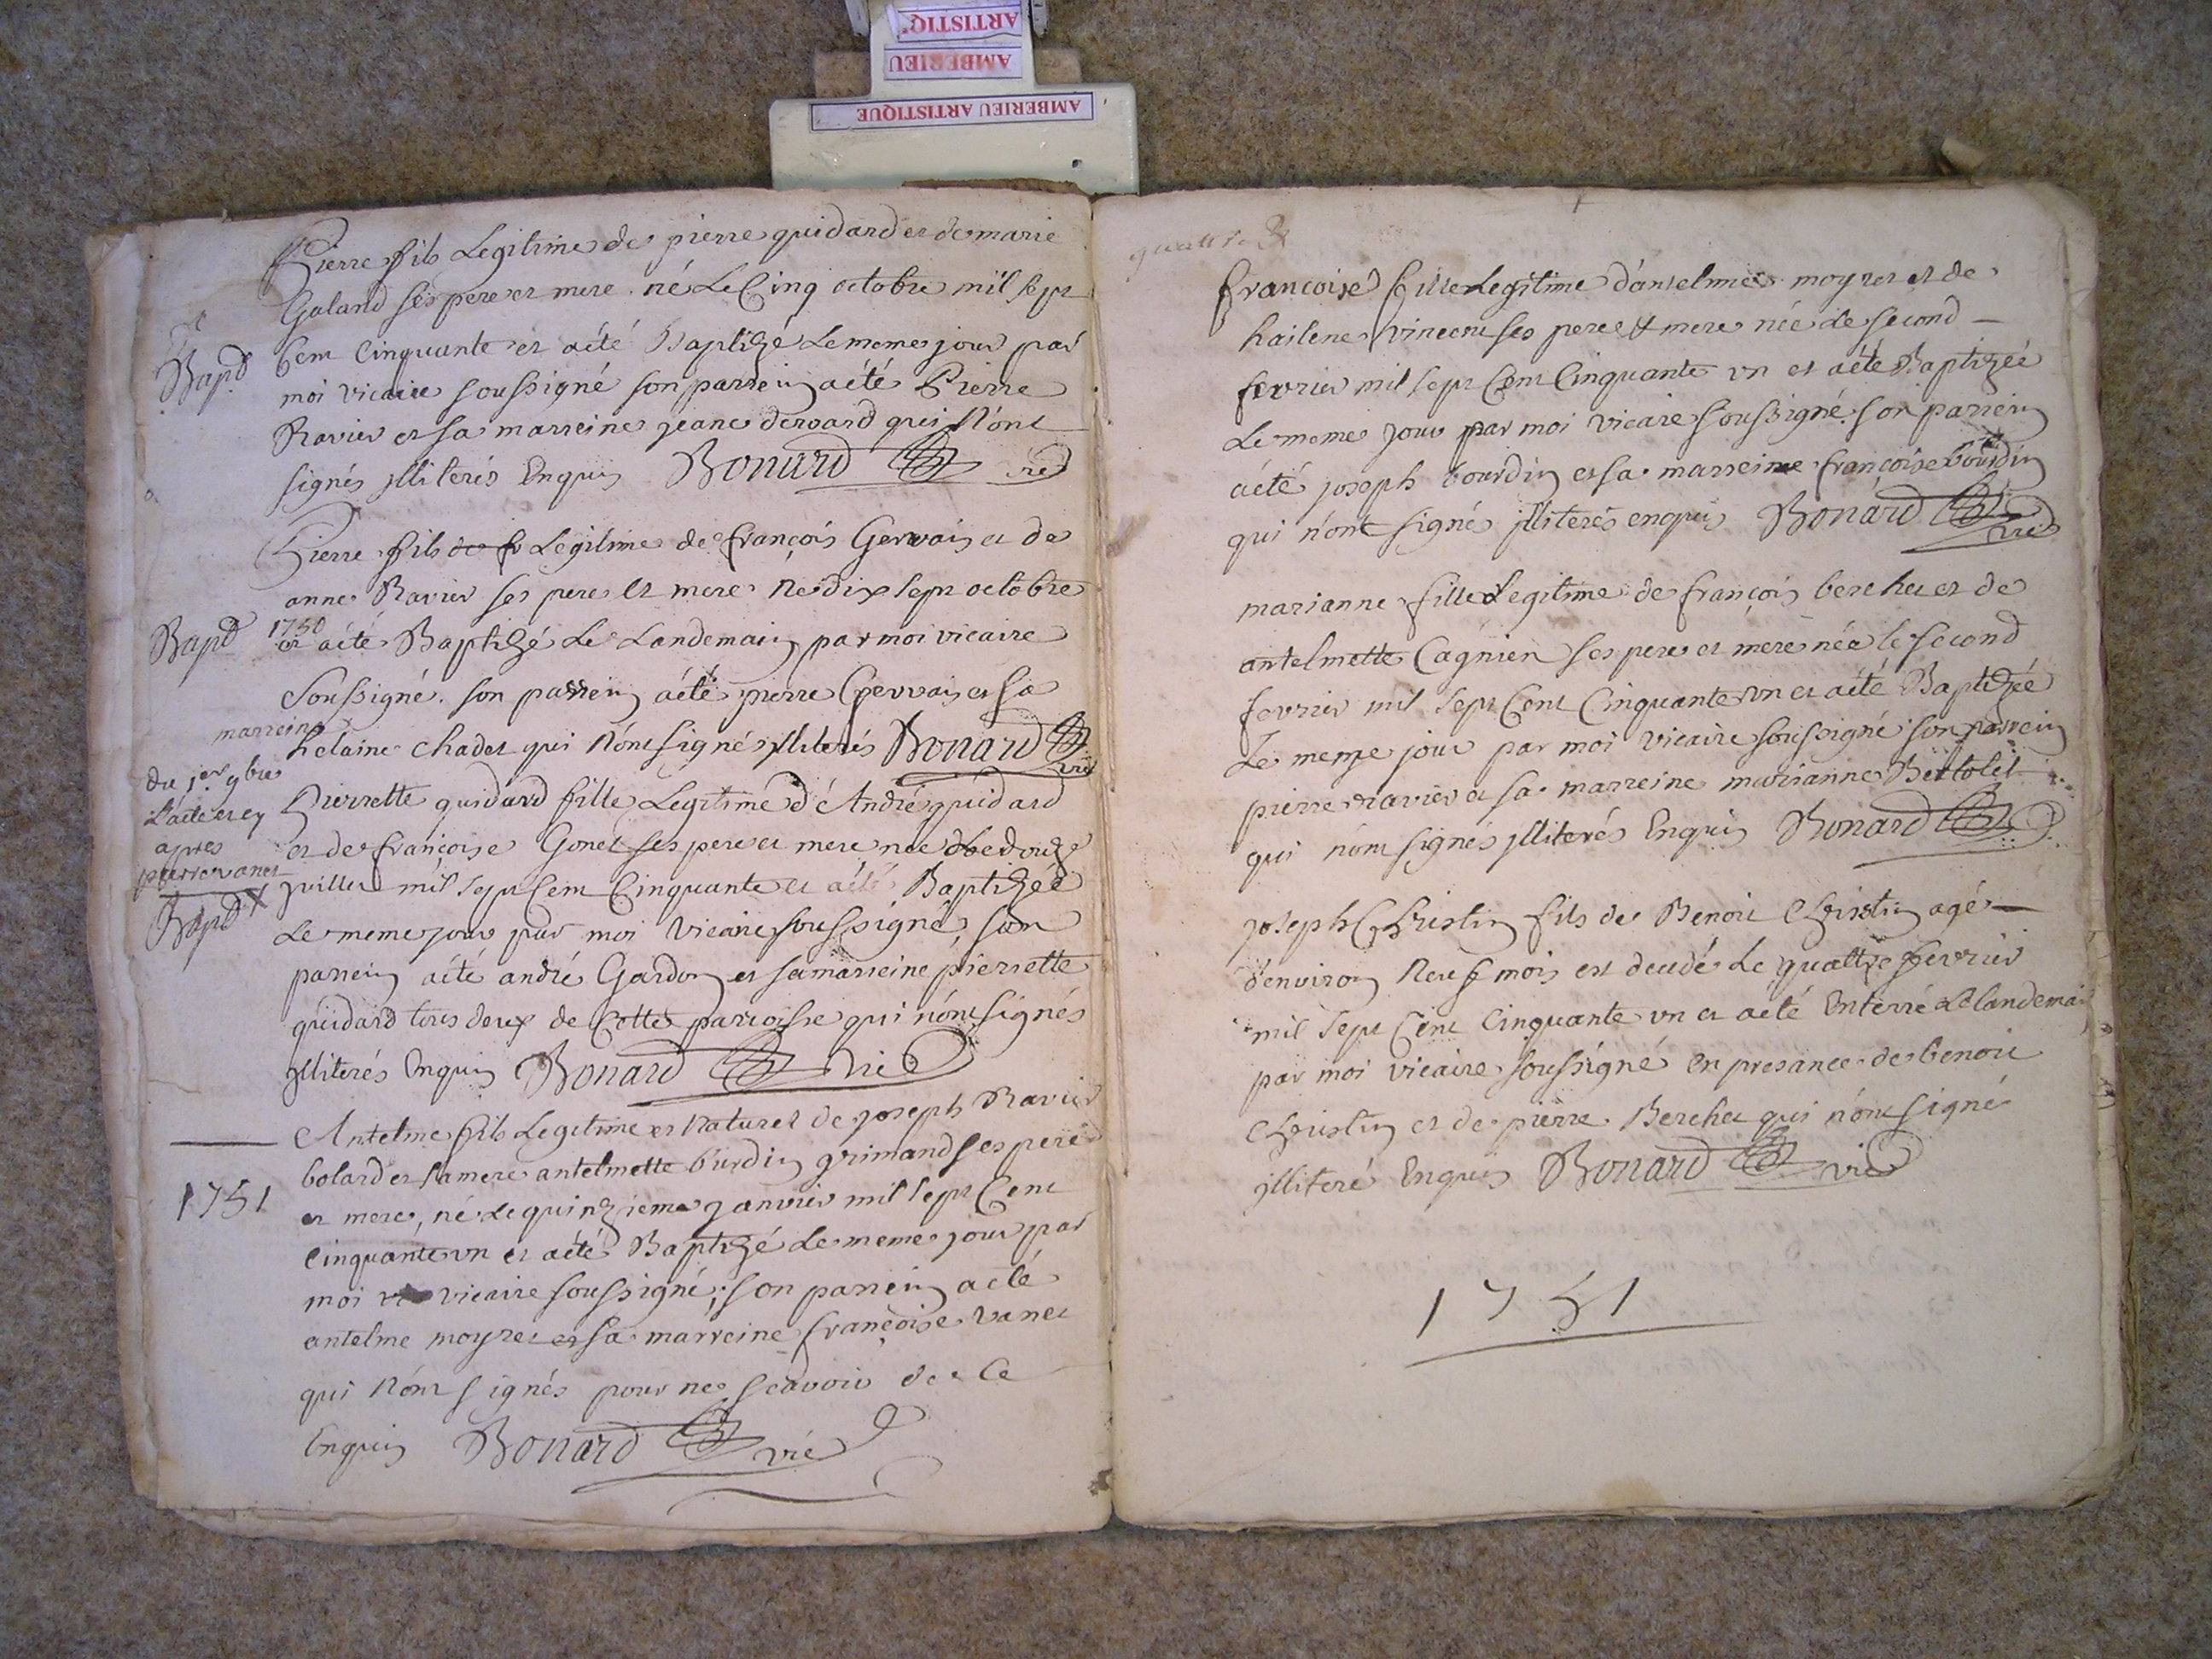 ARTISTIQ
AMBERIEU
AMBERIEU ARTISTIQUE
Pierre fils Legitime de pierre quidard et de marie
Galand ses pere et mere né Le Cinq octobre mil sept
Bapt
Cent Cinquante et aété Baptizé Le meme jour par
moi vicaire soussigné son parrein aété Pierre
Ravier et sa marreine jeane qui N'ont
signés jlliterés Enquis Bonard vic
Pierre fils de fr Legitime de françois Gervais et de
anne Ravier ses pere et mere Né dix sept octobre
Bapt
1750
et aété Baptizé Le Landemain par moi vicaire
Soussigné. son parrein aété pierre Gervais et sa
marreine
helaine chadet qui N'ont signés jlliterés Bonard vic
du 1er 9bre
L'acte est cy
apres
pierre vanet
Bapt
Pierrette quidard fille Legitime d'André quidard
et de françoise Gonet ses pere et mere née Le douze
juillet mil sept Cent Cinquante et aété Baptizée
Le meme jour par moi vicaire soussigné, son
parrein aété andré Gardon et sa marreine pierrette
quidard tous deux de Cette parroisse qui n'ont signés
jlliterés Enquis Bonard vic
Antelme fils Legitime et Naturel de joseph Ravier
bolard et sa mere antelmette burdin grimand ses pere
1751
et mere, né Le quinzieme janvier mil sept Cent
Cinquante vn et aété Baptizé Le meme jour par
moi vicaire soussigné; son parrein aété
antelme moyret et sa marreine françoise vanet
qui N'ont signés pour ne sçavoir de Ce
Enquis Bonard vic
quattre
francoise fille Legitime d'antelme moyret et de
hailene vincent ses pere et mere née Le second
fevrier mil sept Cent Cinquante vn et aété Baptizée
Le meme jour par moi vicaire soussigné son parrein
aété joseph bourdin et sa marreine françoise bourdin
qui n'ont signé jlliterés enquis Bonard vic
marianne fille Legitime de françois berchet et de
antelmette Cagnien ses pere et mere née le second
fevrier mil sept Cent Cinquante vn et aété Baptizée
Le meme jour par moi vicaire soussigné son parrein
pierre ravier et sa marreine marianne Bertolet
qui n'ont signés jlliterés Enquis Bonard
joseph Christin fils de Benoit Christin agé
d'environ Neuf mois est decedé Le quattre fevrier
mil sept Cent Cinquante vn et aété Enterré Le landemain
par moi vicaire soussigné en presance de benoit
Christin et de pierre Berchet qui n'ont signé
jlliteré Enquis Bonard vic
1751